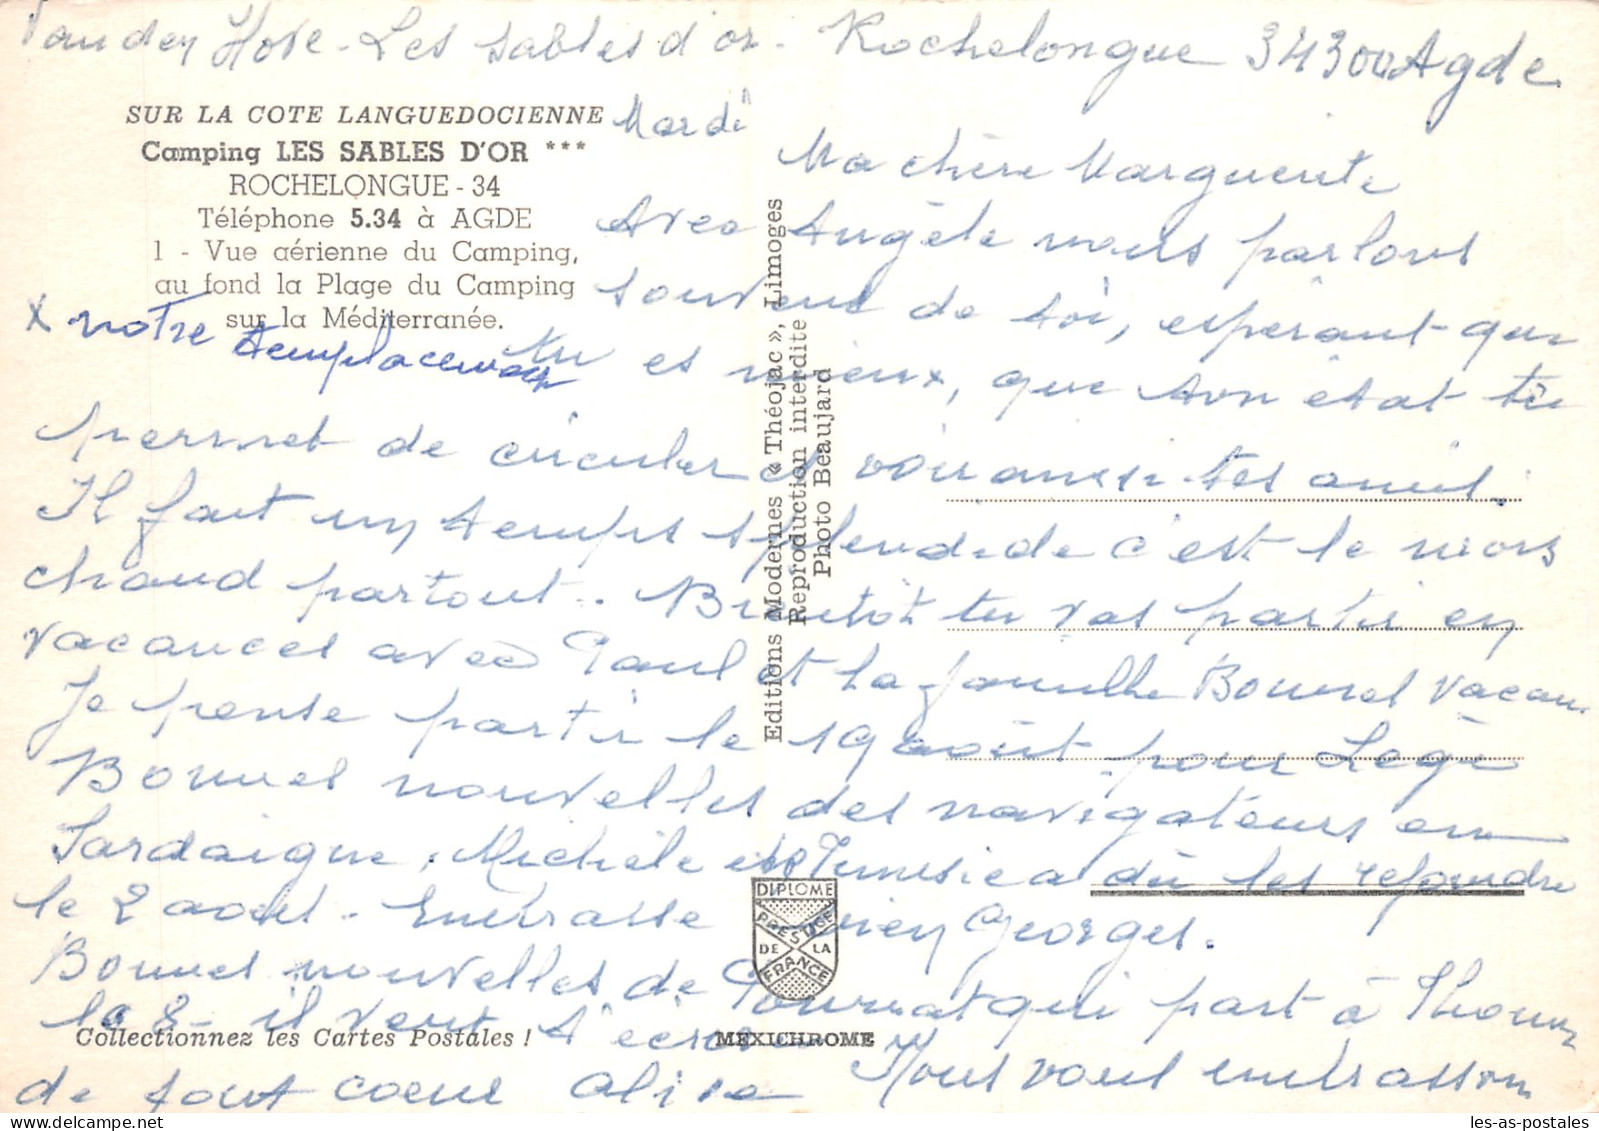 Van den Hove - Les sables d'or - Rochelongue 34300 Agde
SUR LA COTE LANGUEDOCIENNE
Camping LES SABLES D'OR ***
ROCHELONGUE - 34
Téléphone 5.34 à AGDE
1 - Vue aérienne du Camping,
au fond la Plage du Camping
sur la Méditerranée.
x notre emplacement
Mardi
Ma chère Marguerite
Avec Angèle nous parlons
souvent de toi, espérant que
tu es mieux, que ton état te
permet de circuler et voir aussi tes amis.
Il fait un temps splendide c'est le mois
chaud partout. Bientôt tu vas partir en
vacances avec Paul et la famille Bonnes vacan.
Je pense partir le 19 août pour Lège
Bonnes nouvelles des navigateurs en
Sardaigne. Michèle Tunisie a dû les rejoindre
le 2 août - Embrasse bien Georges.
Bonnes nouvelles de qui part à
le 8 - il veut t'écrire Nous vous embrassons
de tout coeur
Editions Modernes « Théojac », Limoges
Reproduction interdite
Photo Beaujard
DIPLOME
PRESTIGE
DE LA
FRANCE
Collectionnez les Cartes Postales !
MEXICHROME
les-as-postales